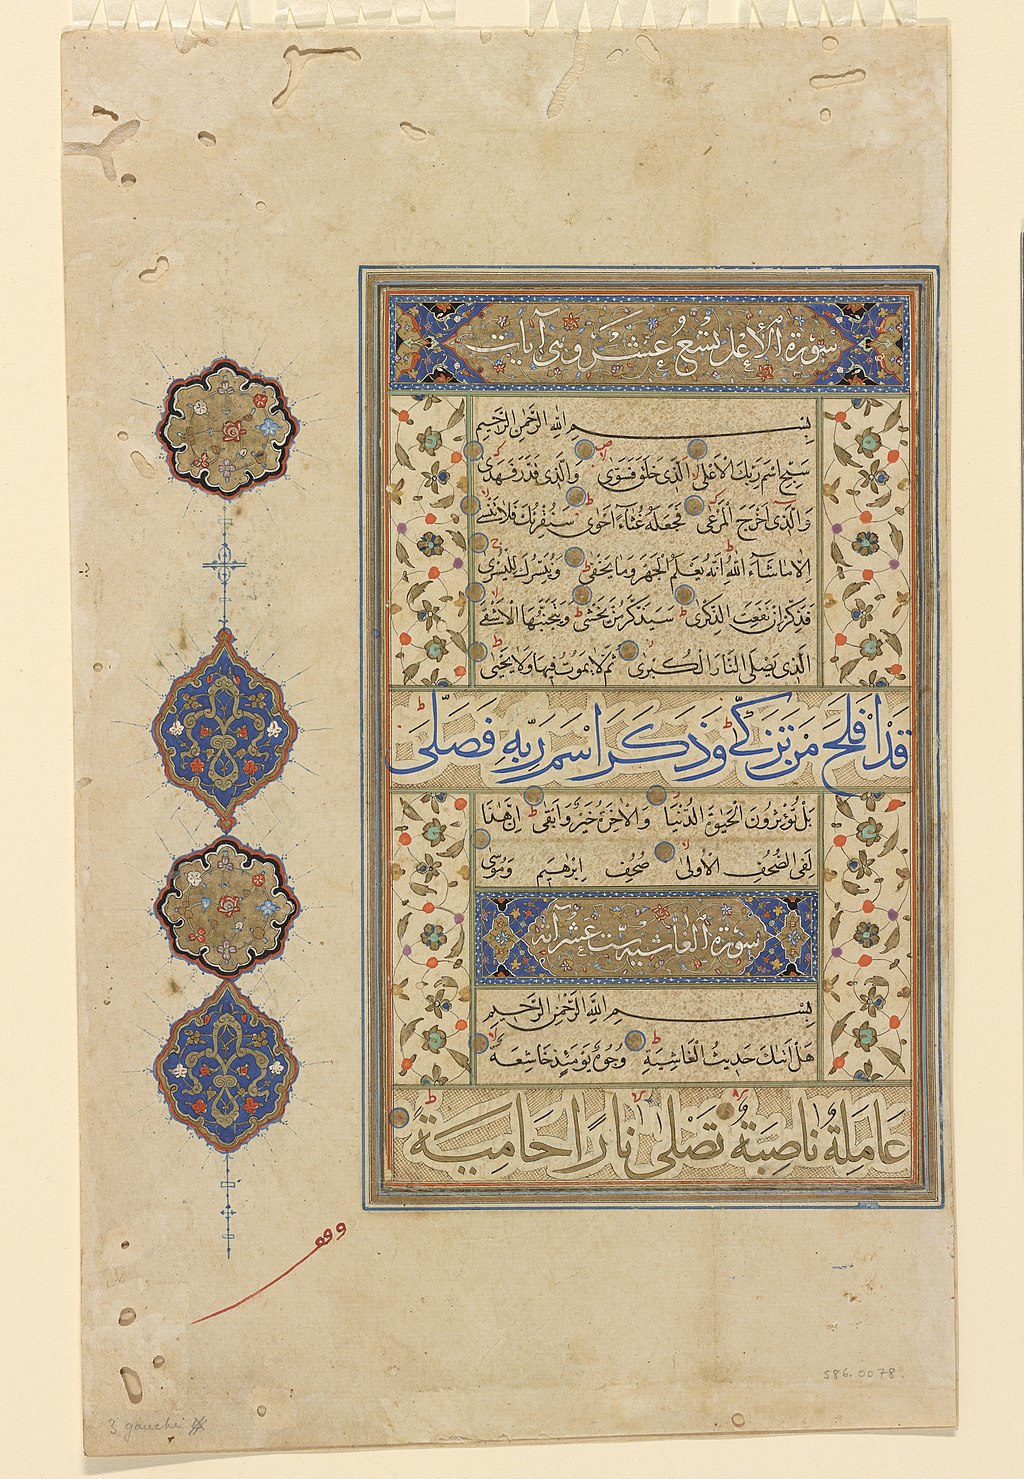 سورة الأعلى تسع عشر وهي آيات
بِسْمِ اللهِ الرَّحْمٰنِ الرَّحِيمِ
سَبِّحِ اسْمَ رَبِّكَ الْأَعْلَى الَّذِى خَلَقَ فَسَوَّى وَالَّذِى قَدَّرَ فَهَدَى
وَالَّذِى أَخْرَجَ الْمَرْعَى فَجَعَلَهُ غُثَاءً أَحْوَى سَنُقْرِئُكَ فَلَا تَنْسَى
إِلَّا مَا شَاءَ اللهُ إِنَّهُ يَعْلَمُ الْجَهْرَ وَمَا يَخْفَى وَنُيَسِّرُكَ لِلْيُسْرَى
فَذَكِّرْ إِنْ نَفَعَتِ الذِّكْرَى سَيَذَّكَّرُ مَنْ يَخْشَى وَيَتَجَنَّبُهَا الْأَشْقَى
الَّذِى يَصْلَى النَّارَ الْكُبْرَى ثُمَّ لَا يَمُوتُ فِيهَا وَلَا يَحْيَى
قَدْ أَفْلَحَ مَنْ تَزَكَّى وَذَكَرَ اسْمَ رَبِّهِ فَصَلَّى
بَلْ تُؤْثِرُونَ الْحَيٰوةَ الدُّنْيَا وَالْآخِرَةُ خَيْرٌ وَأَبْقَى إِنَّ هٰذَا
لَفِى الصُّحُفِ الْأُولَى صُحُفِ إِبْرٰهِيمَ وَمُوسَى
سورة الغاشية ست عشر آية
بِسْمِ اللهِ الرَّحْمٰنِ الرَّحِيمِ
هَلْ أَتٰكَ حَدِيثُ الْغَاشِيَةِ وُجُوهٌ يَوْمَئِذٍ خَاشِعَةٌ
عَامِلَةٌ نَاصِبَةٌ تَصْلَى نَارًا حَامِيَةً
وقف
586.0078.
3 gauche